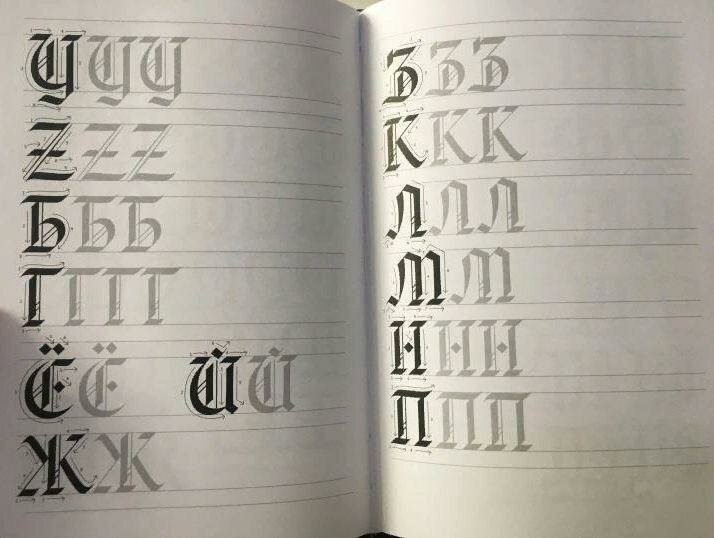 УУУ
ZZZ
ББ Б
ГГГГ
ЁЁ ЙЙ
ЖЖ
ЗЗЗ
ККК
ЛЛЛ
ММ
ННН
ППП